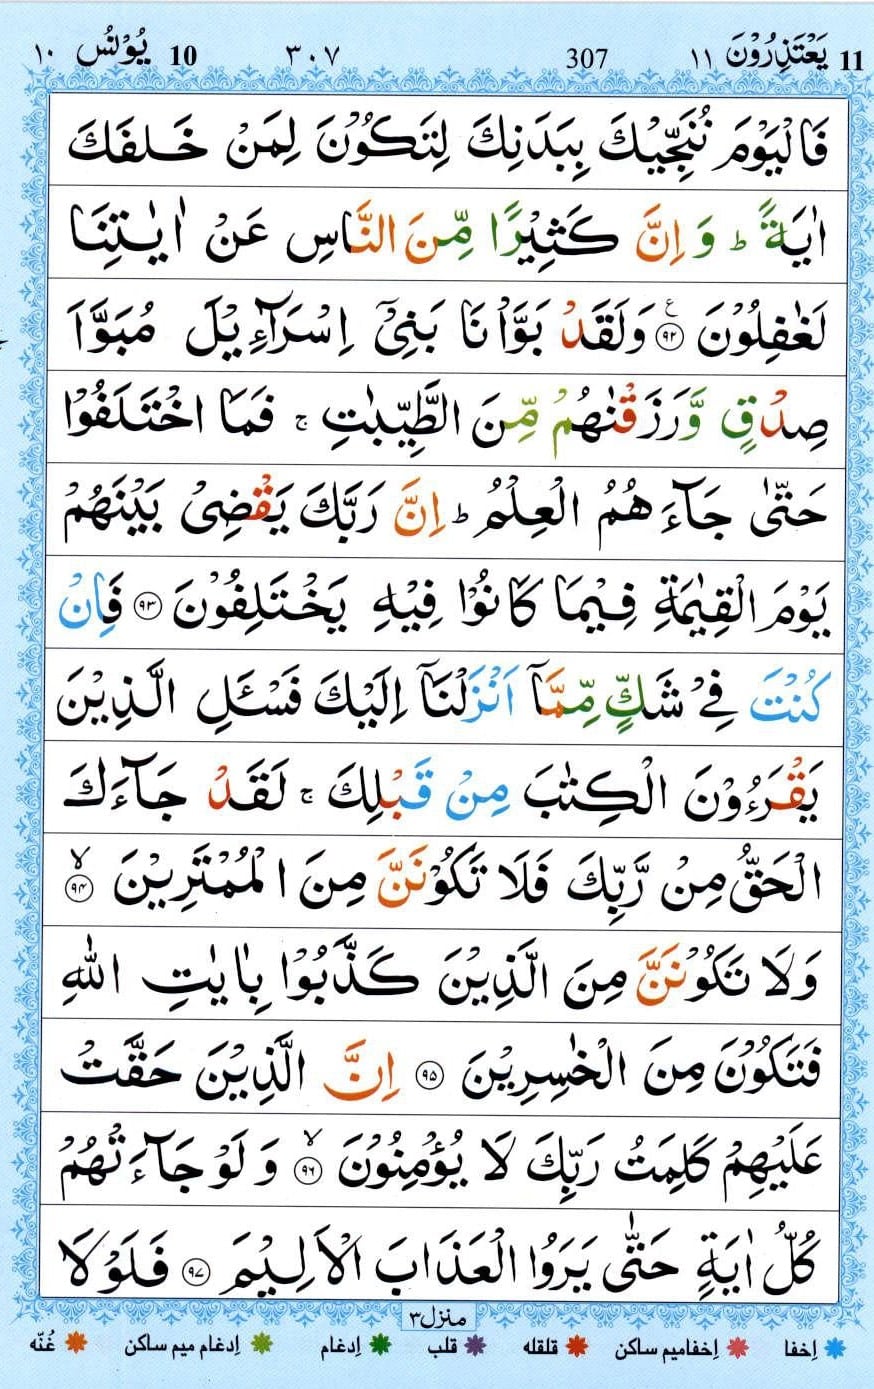 11 یَعْتَذِرُوْنَ ١١ 307 ٣٠٧ 10 یُوْنُس ١٠
فَالْیَوْمَ نُنَجِّیْكَ بِبَدَنِكَ لِتَكُوْنَ لِمَنْ خَلْفَكَ
اٰیَةً ؕ وَ اِنَّ كَثِیْرًا مِّنَ النَّاسِ عَنْ اٰیٰتِنَا
لَغٰفِلُوْنَ ۟۹۲ ع وَلَقَدْ بَوَّاْنَا بَنِیْۤ اِسْرَآءِیْلَ مُبَوَّاَ
صِدْقٍ وَّرَزَقْنٰهُمْ مِّنَ الطَّیِّبٰتِ ۚ فَمَا اخْتَلَفُوْا
حَتّٰی جَآءَهُمُ الْعِلْمُ ؕ اِنَّ رَبَّكَ یَقْضِیْ بَیْنَهُمْ
یَوْمَ الْقِیٰمَةِ فِیْمَا كَانُوْا فِیْهِ یَخْتَلِفُوْنَ ۹۳ فَاِنْ
كُنْتَ فِیْ شَكٍّ مِّمَّاۤ اَنْزَلْنَاۤ اِلَیْكَ فَسْـَٔلِ الَّذِیْنَ
یَقْرَءُوْنَ الْكِتٰبَ مِنْ قَبْلِكَ ۚ لَقَدْ جَآءَكَ
الْحَقُّ مِنْ رَّبِّكَ فَلَا تَكُوْنَنَّ مِنَ الْمُمْتَرِیْنَ ۙ ۹۴
وَلَا تَكُوْنَنَّ مِنَ الَّذِیْنَ كَذَّبُوْا بِاٰیٰتِ اللّٰهِ
فَتَكُوْنَ مِنَ الْخٰسِرِیْنَ ۹۵ اِنَّ الَّذِیْنَ حَقَّتْ
عَلَیْهِمْ كَلِمَتُ رَبِّكَ لَا یُؤْمِنُوْنَ ۙ ۹۶ وَلَوْ جَآءَتْهُمْ
كُلُّ اٰیَةٍ حَتّٰی یَرَوُا الْعَذَابَ الْاَلِیْمَ ۹۷ فَلَوْلَا
منزل٣
اِخفا اِخفامیم ساکن قلقله قلب اِدغام اِدغام میم ساکن غُنّه